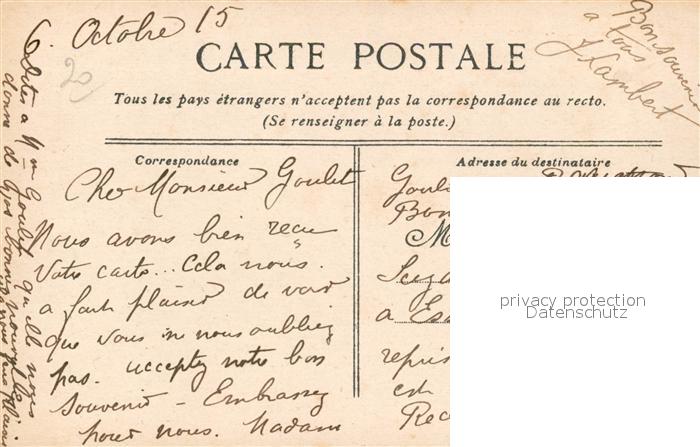 6. Octobre 15
20
Bonsouvenir
a tous
J Lambert
CARTE POSTALE
Tous les pays étrangers n'acceptent pas la correspondance au recto.
(Se renseigner à la poste.)
Correspondance
Adresse du destinataire
Cher Monsieur Goulet
Nous avons bien recu
Votre carte... Cela nous.
a fait plaisir de voir
que vous ne nous oubliez
pas. acceptez notre bon
souvenir - Embrassez
pour nous. Madam
Dites a Mme Goulet qu'elle nous
donne de vos bonnes nouvelles
Bon
M
a Es
repris
est
Rec
privacy protection
Datenschutz